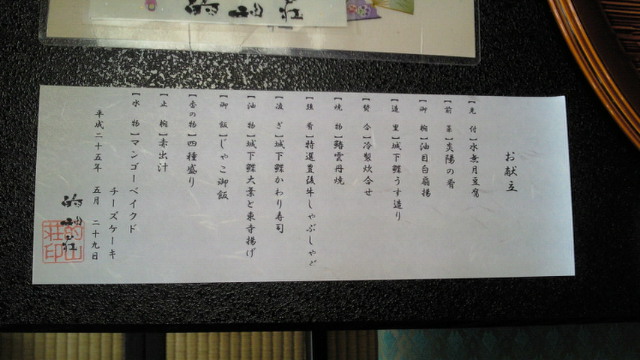 お献立
【先 付】水無月豆腐
【前 菜】炎陽の肴
【御 椀】油目白扇揚
【造 里】城下鰈うす造り
【賛 合】冷製炊合せ
【焼 物】鱚雲丹焼
【強 肴】特選豊後牛しゃぶしゃぶ
【凌 ぎ】城下鰈かわり寿司
【油 物】城下鰈大葉と東寺揚げ
【御 飯】じゃこ御飯
【香の物】四種盛り
【止 椀】赤出汁
【水 物】マンゴーベイクド
チーズケーキ
平成二十五年 五月 二十九日